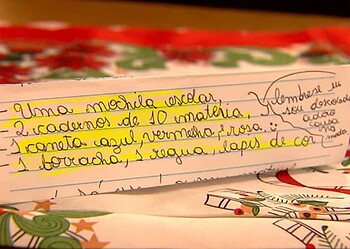 Uma mochila escolar,
2 cadernos de 10 matéria,
1 caneta azul, vermelha, rosa. :)
1 borracha, 1 regua, lapis de cor,
lembresi eu
sou